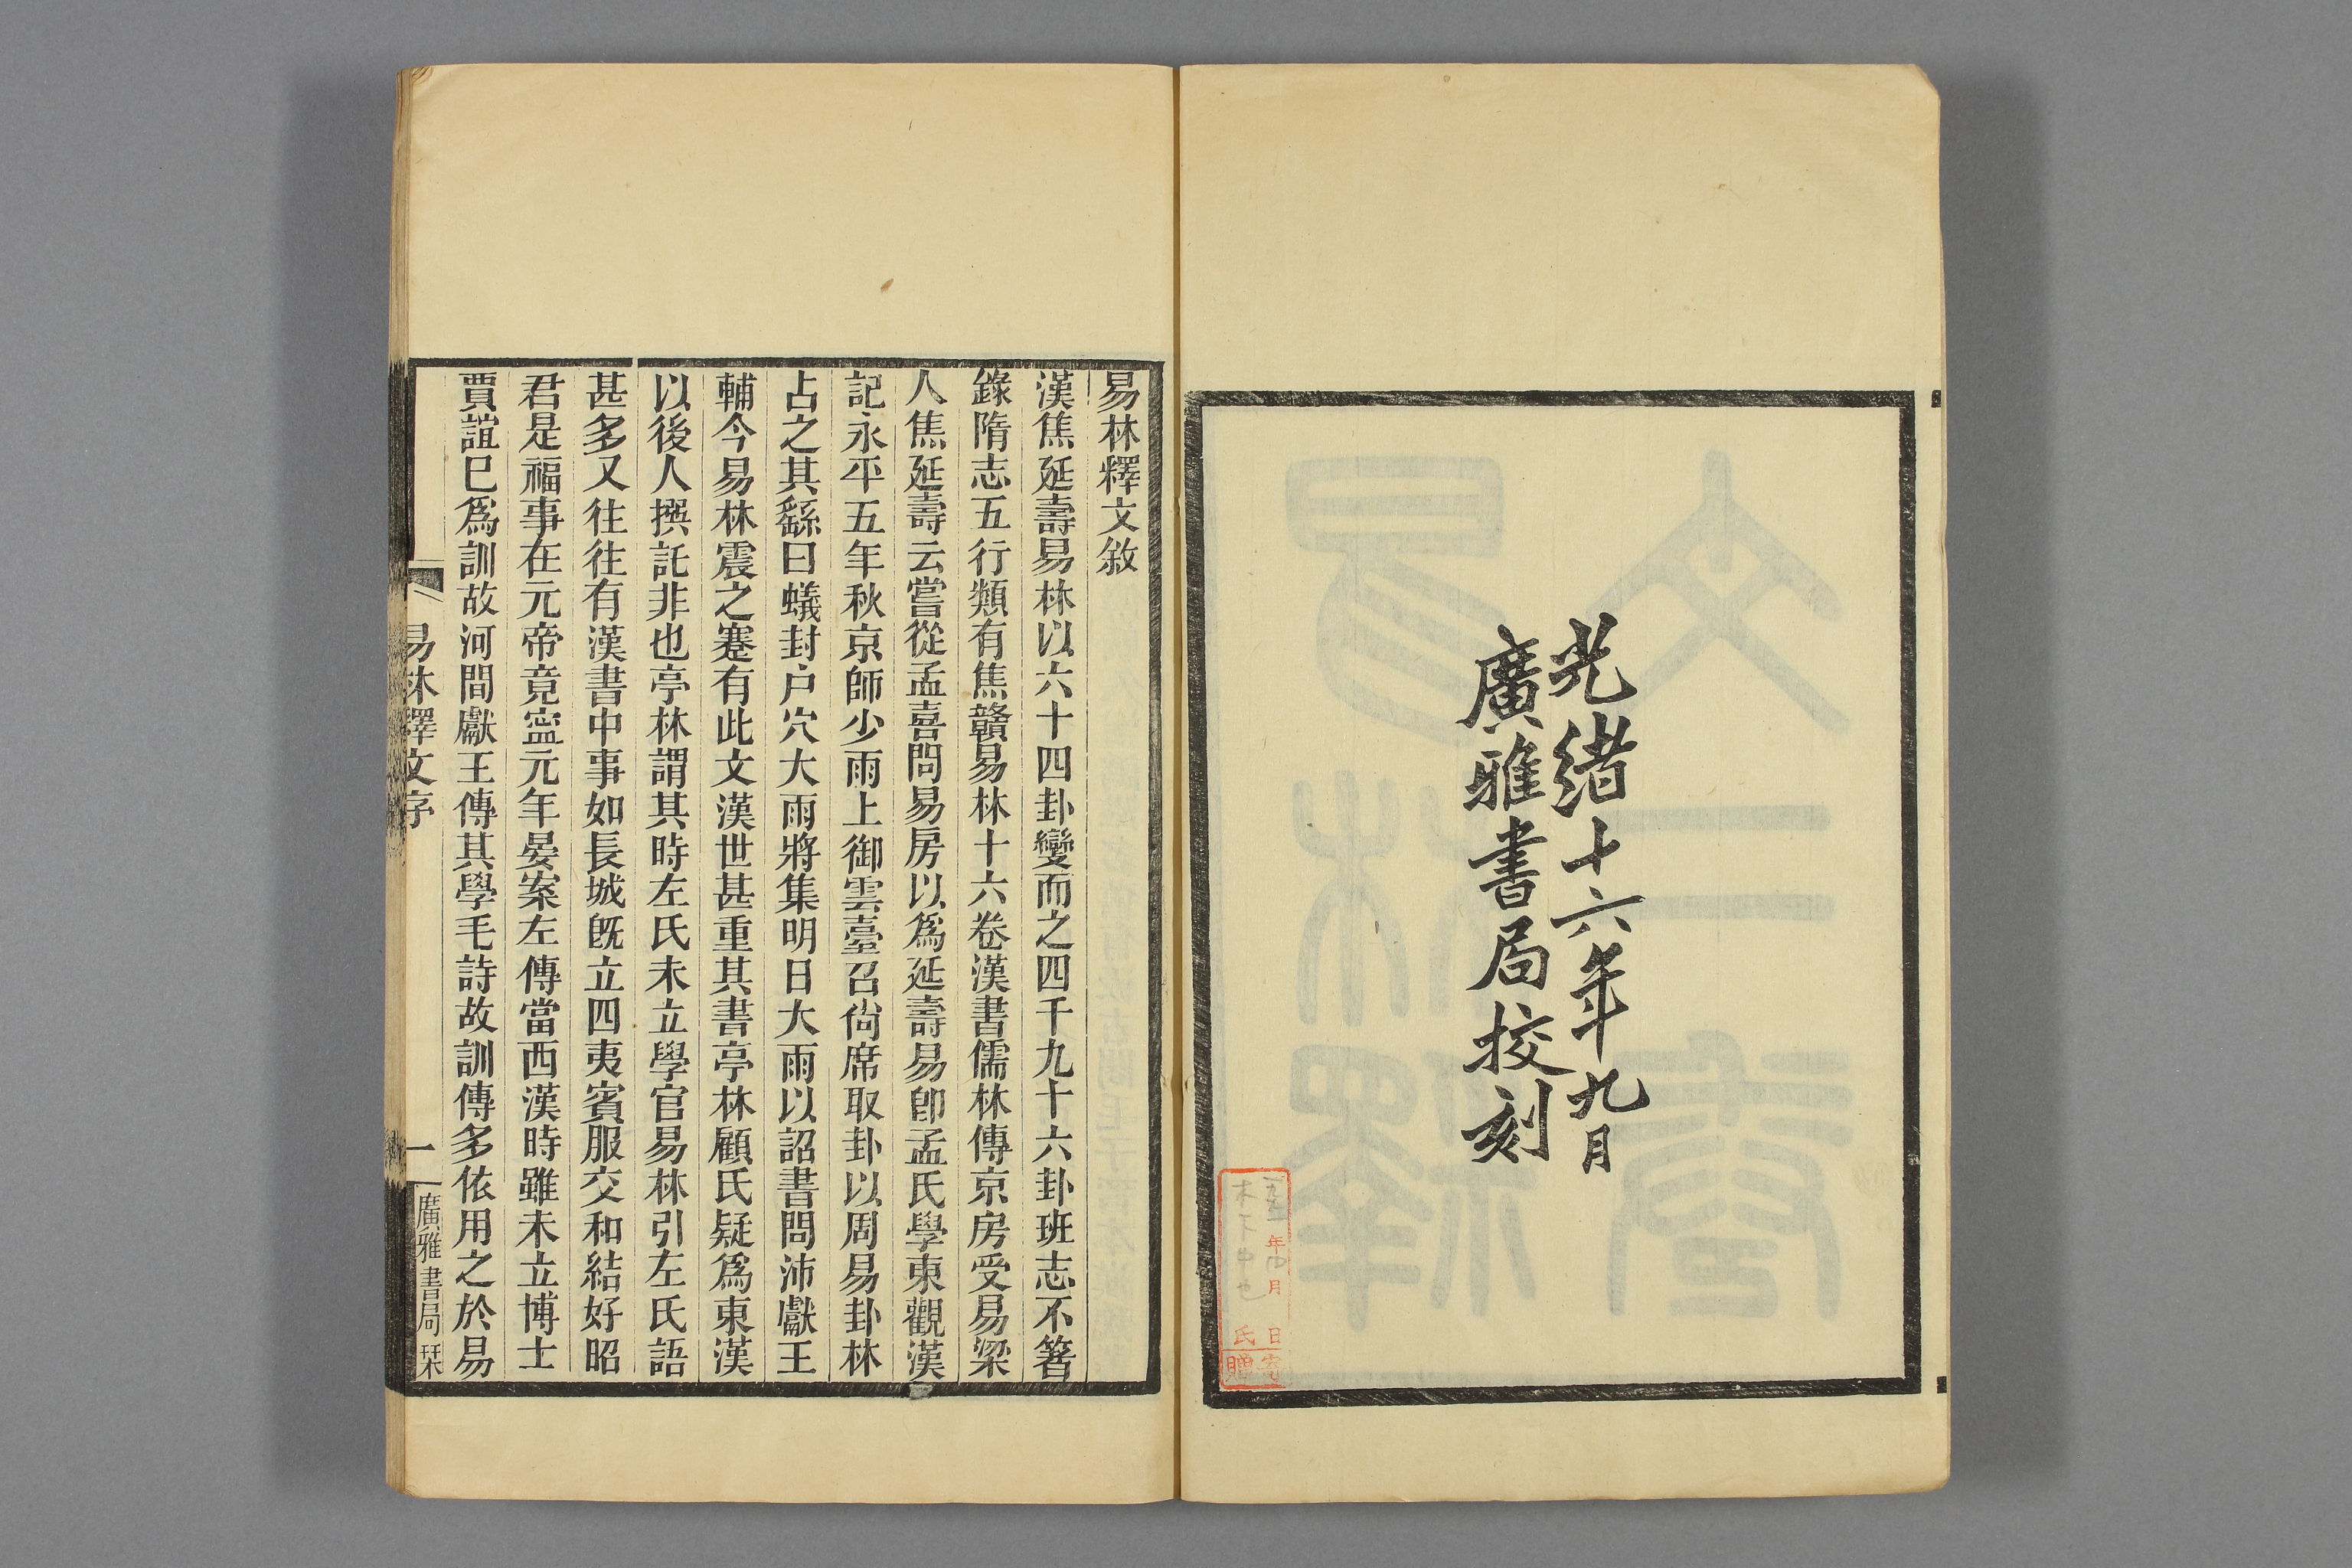 光緒十六年九月
廣雅書局挍刻
年 月 日寄
氏贈
易林釋文敘
漢焦延壽易林以六十四卦變而之四千九十六卦班志不箸
錄隋志五行類有焦贛易林十六卷漢書儒林傳京房受易梁
人焦延壽云嘗從孟喜問易房以爲延壽易卽孟氏學東觀漢
記永平五年秋京師少雨上御雲臺召尙席取卦以周易卦林
占之其繇曰蟻封戶穴大雨將集明日大雨以詔書問沛獻王
輔今易林震之蹇有此文漢世甚重其書亭林顧氏疑爲東漢
以後人撰託非也亭林謂其時左氏未立學官易林引左氏語
甚多又往往有漢書中事如長城旣立四夷賓服交和結好昭
君是福事在元帝竟寍元年晏案左傳當西漢時雖未立博士
賈誼巳爲訓故河間獻王傳其學毛詩故訓傳多依用之於易
易林釋文序
一
廣雅書局栞